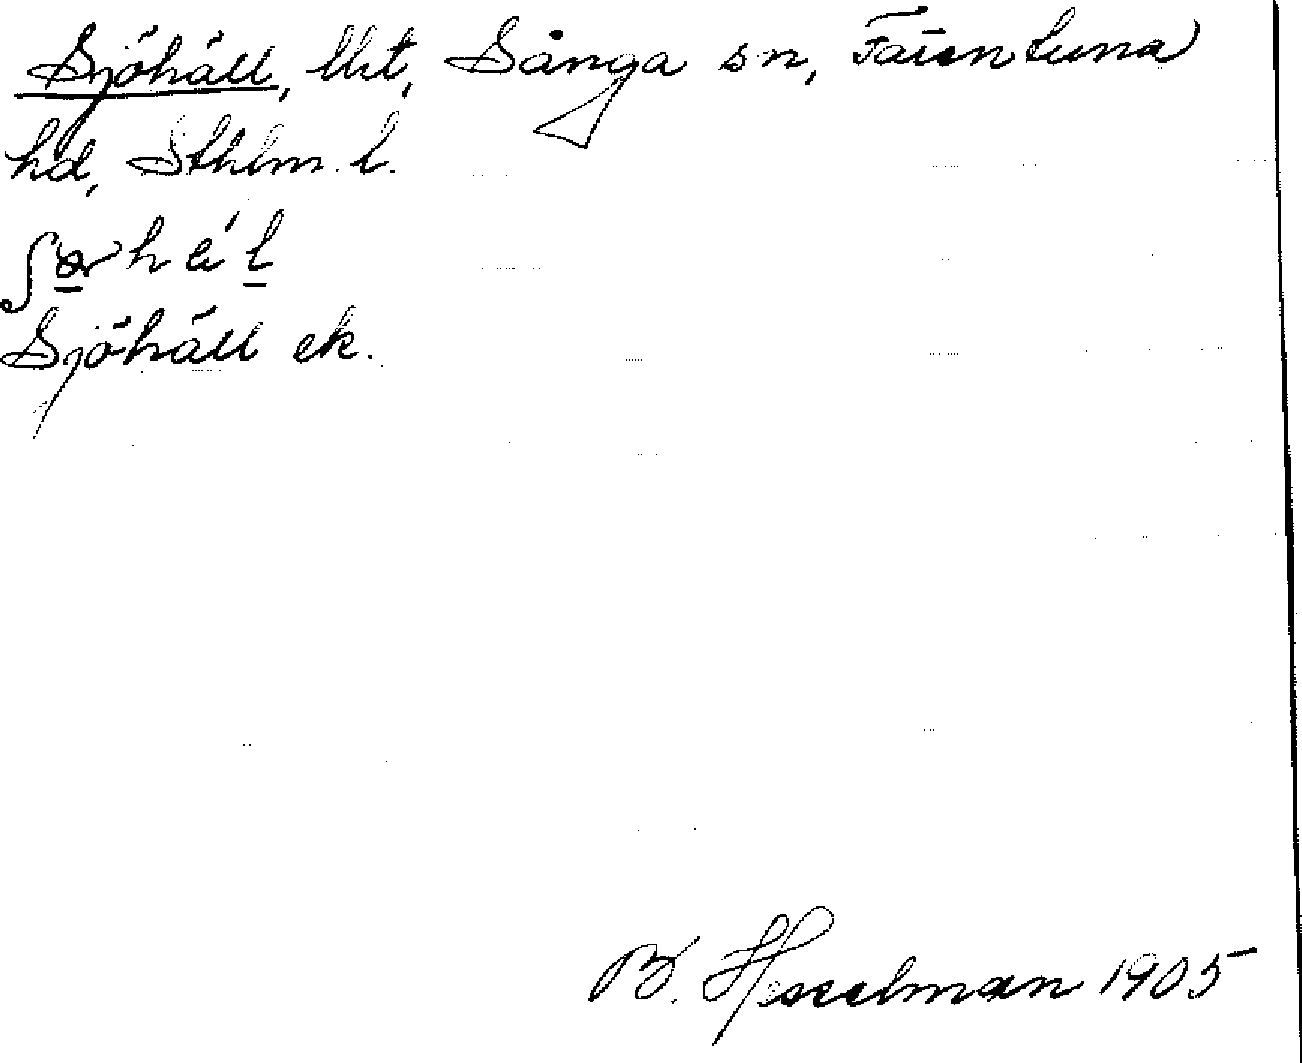 Sjöhäll, lht, Sånga sn, Färentuna
hd, Sthlm. l.
Sjöhäll ek.
B. Hesselman 1905